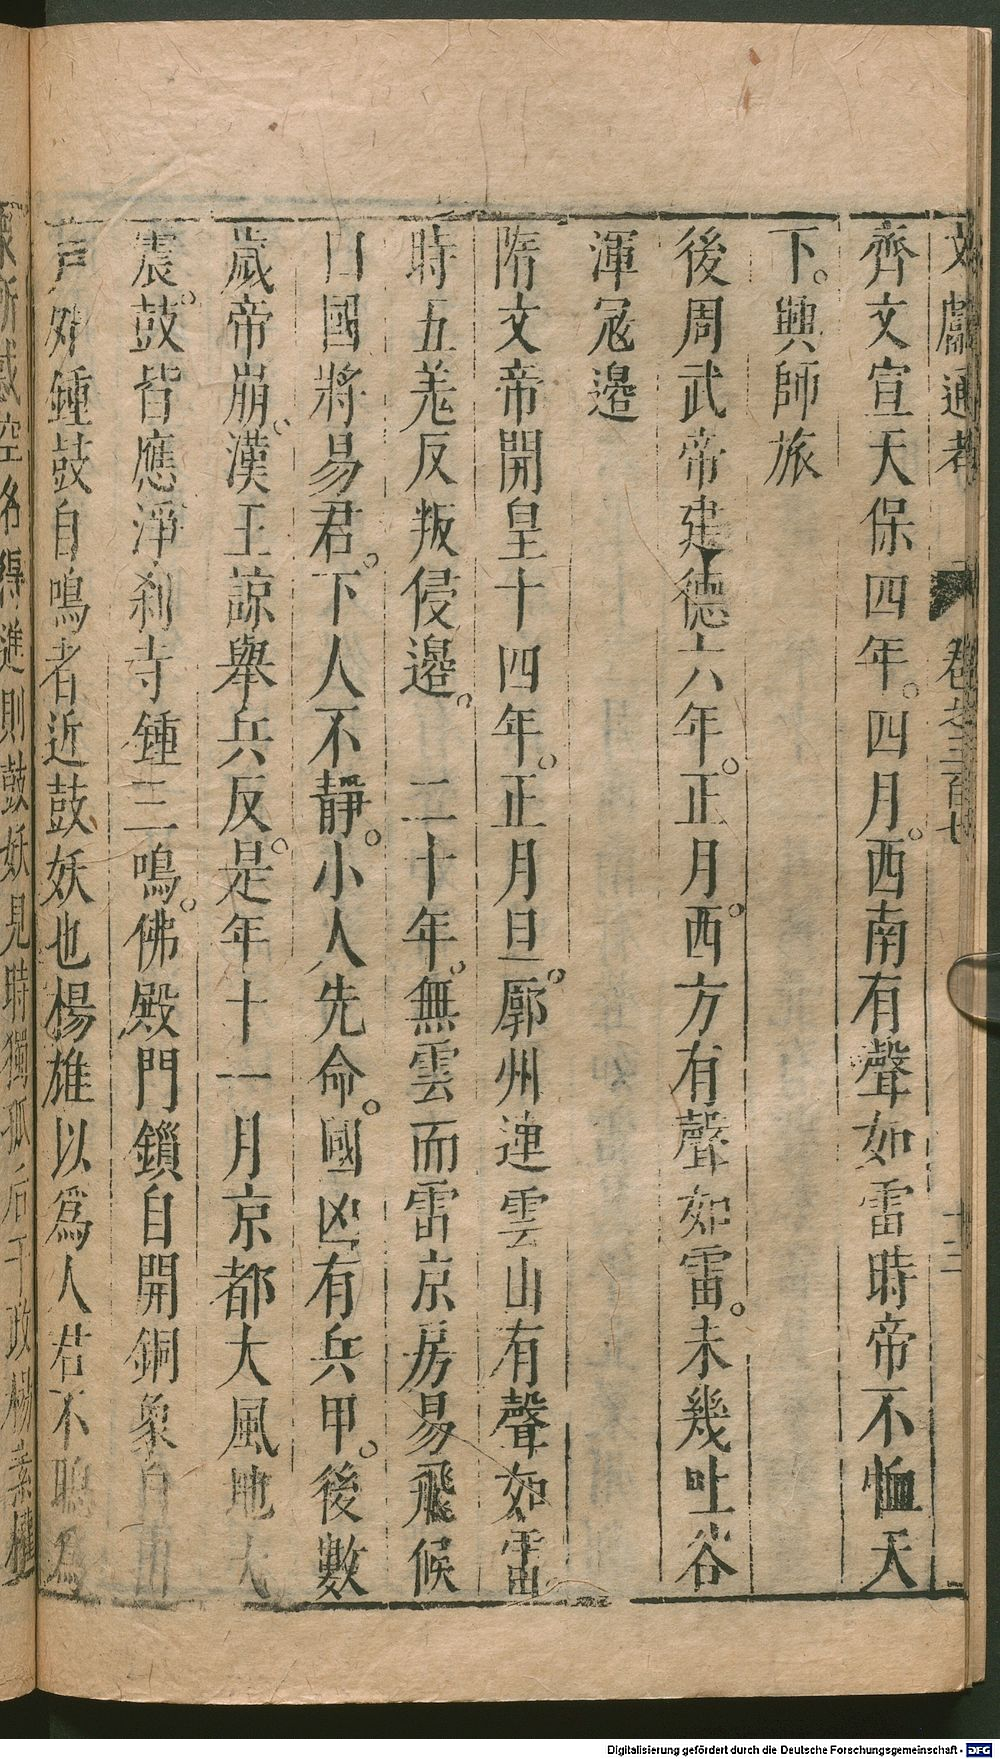 文獻通考 卷之三百七 十二
齊文宣天保四年。四月。西南有聲如雷時帝不恤天
下。興師旅
後周武帝建德六年。正月。西方有聲如雷。未幾吐谷
渾冦邉
隋文帝開皇十四年。正月旦。廓州連雲山有聲如雷
時五羗反叛侵邉。 二十年。無雲而雷京房易飛候
曰國將易君。下人不靜。小人先命。國凶有兵甲。後數
歲帝崩。漢王諒舉兵反。是年十一月京都大風地大
震。鼓皆應淨刹寺鍾三鳴。佛殿門鎖自開銅象自出
戸外鍾鼓自鳴者近鼓妖也楊雄以爲人君不聰爲
衆所惑空名得進則鼓妖見時獨孤后干政楊素權
Digitalisierung gefördert durch die Deutsche Forschungsgemeinschaft - DFG